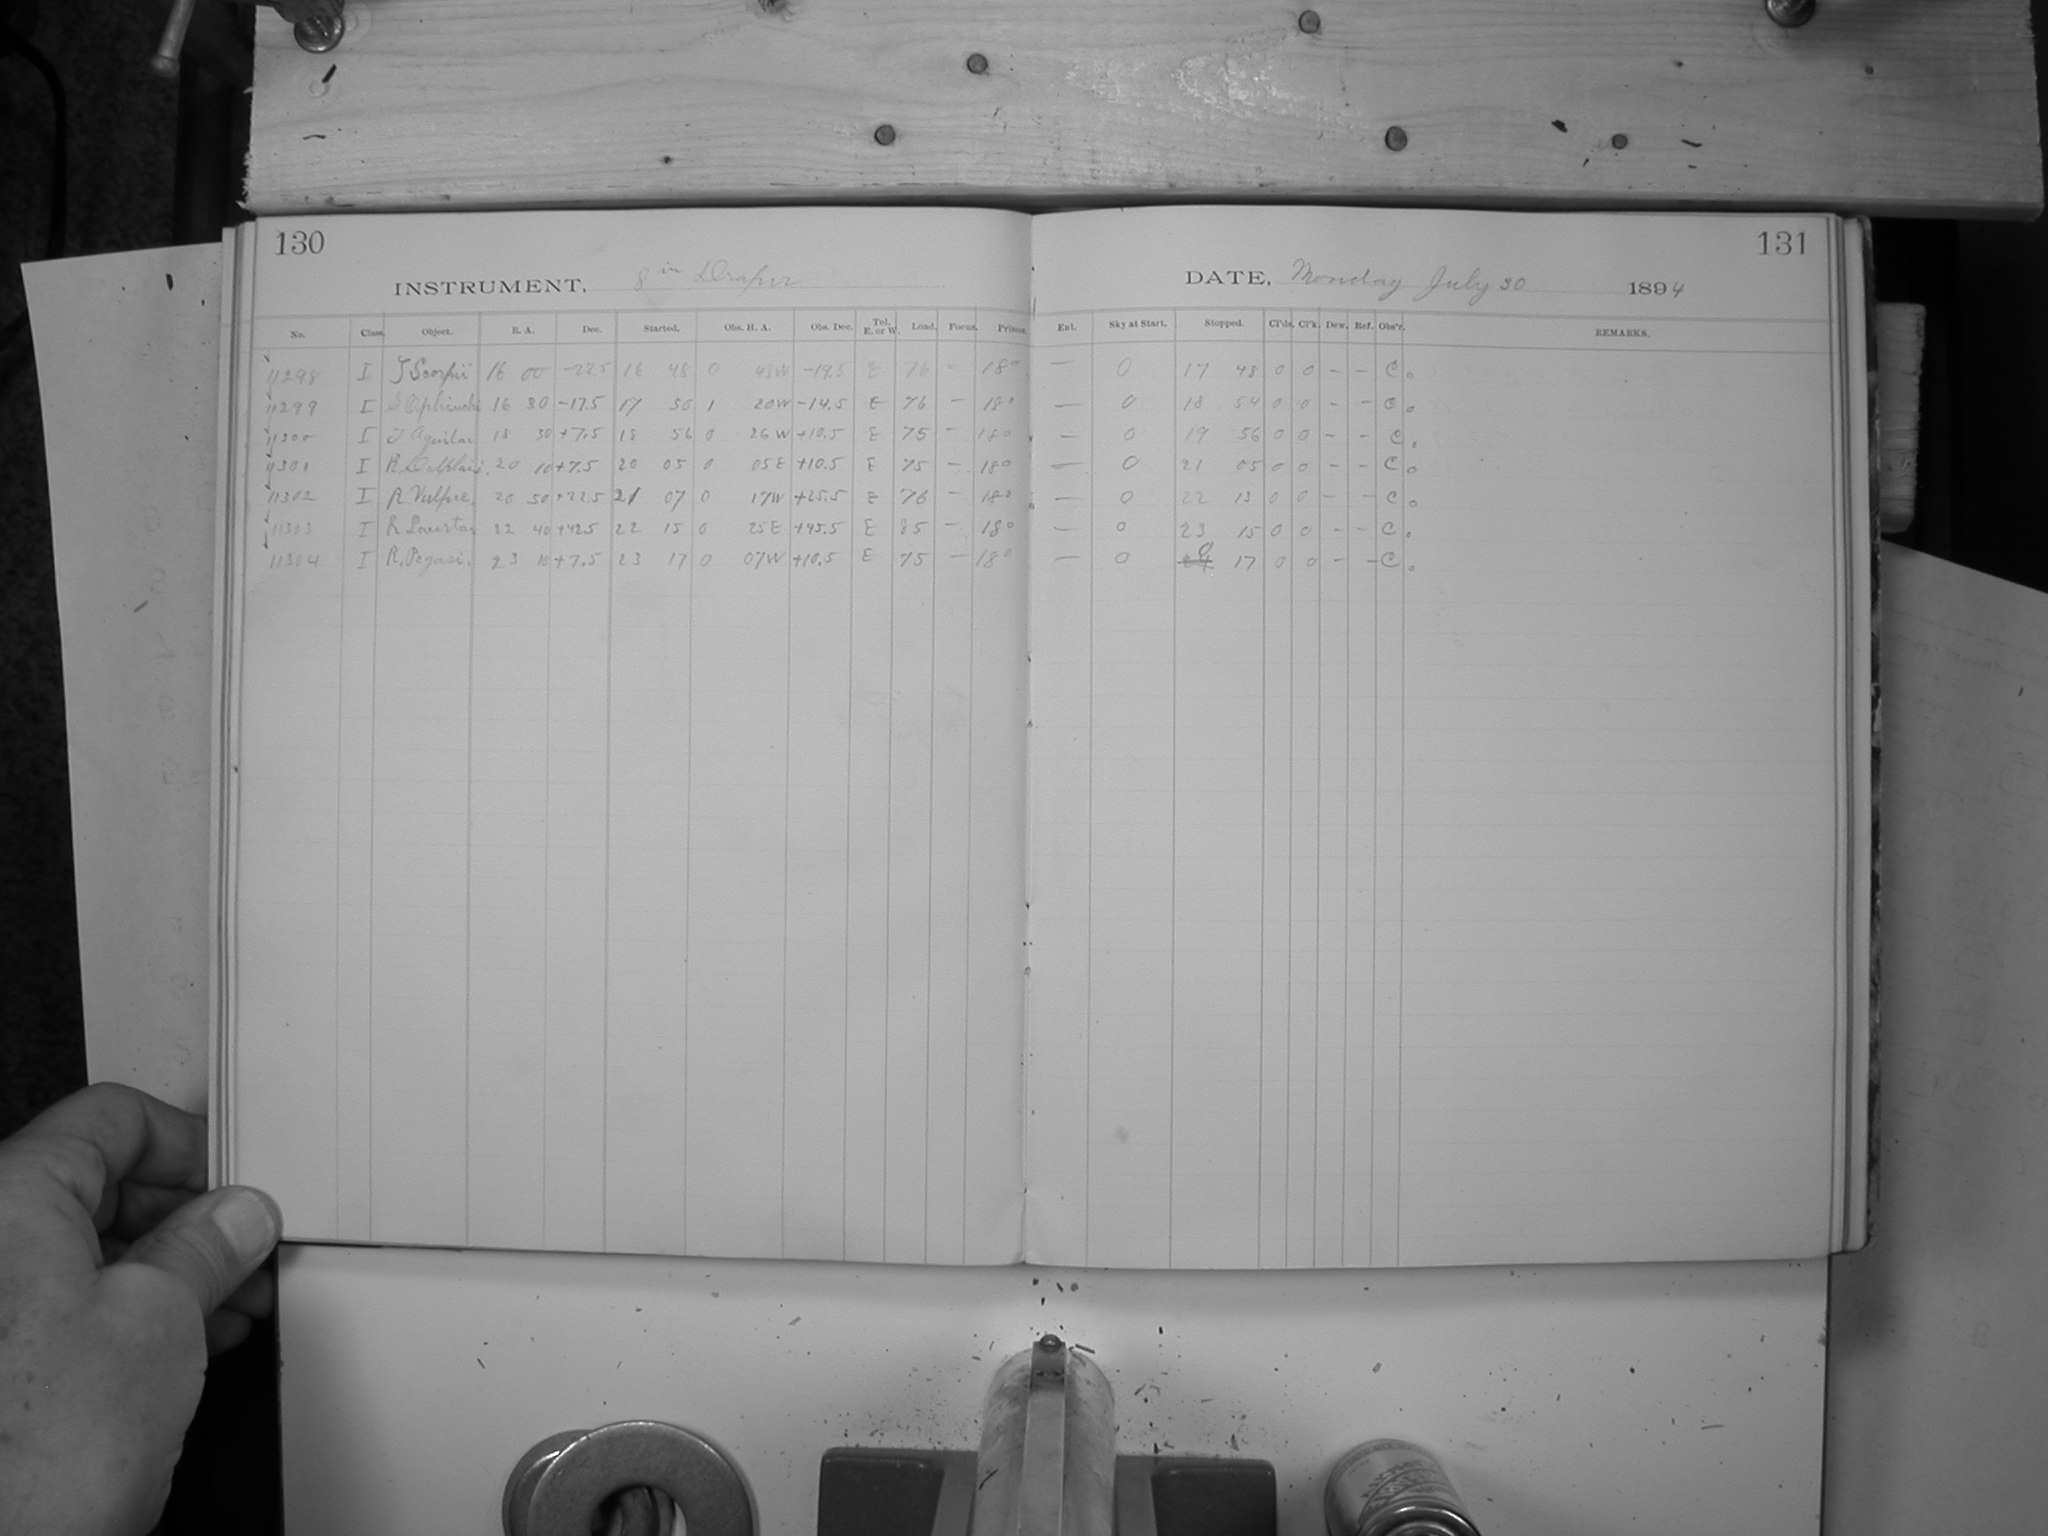 130
INSTRUMENT, 8 in Draper
No. Class. Object. R. A. Dec. Started. Obs. H. A. Obs. Dec. Tel. E. or W. Load. Focus. Prisms.
11298 I T Scorpii 16 00 -22.5 16 48 0 48W -19.5 E 76 - 18°
11299 I S Ophiuchi 16 30 -17.5 17 50 1 20W -14.5 E 76 - 18°
11300 I T Aquilae 18 30 +7.5 18 56 0 26W +10.5 E 75 - 18°
11301 I R. Delphini. 20 10 +7.5 20 05 0 05E +10.5 E 75 - 18°
11302 I R Vulpec. 20 50 +22.5 21 07 0 17W +25.5 E 76 - 18°
11303 I R Lacertae 22 40 +42.5 22 15 0 25E +45.5 E 85 - 18°
11304 I R. Pegasi. 23 10 +7.5 23 17 0 07W +10.5 E 75 - 18°
131
DATE, Monday July 30 1894
Ext. Sky at Start. Stopped. Cl'ds. Cl'k. Dew. Ref. Obs'r. REMARKS.
— 0 17 48 0 0 - - C.
— 0 18 54 0 0 - - C.
— 0 19 56 0 0 - - C.
— 0 21 05 0 0 - - C.
— 0 22 13 0 0 - - C.
— 0 23 15 0 0 - - C.
— 0 0 17 0 0 - - C.